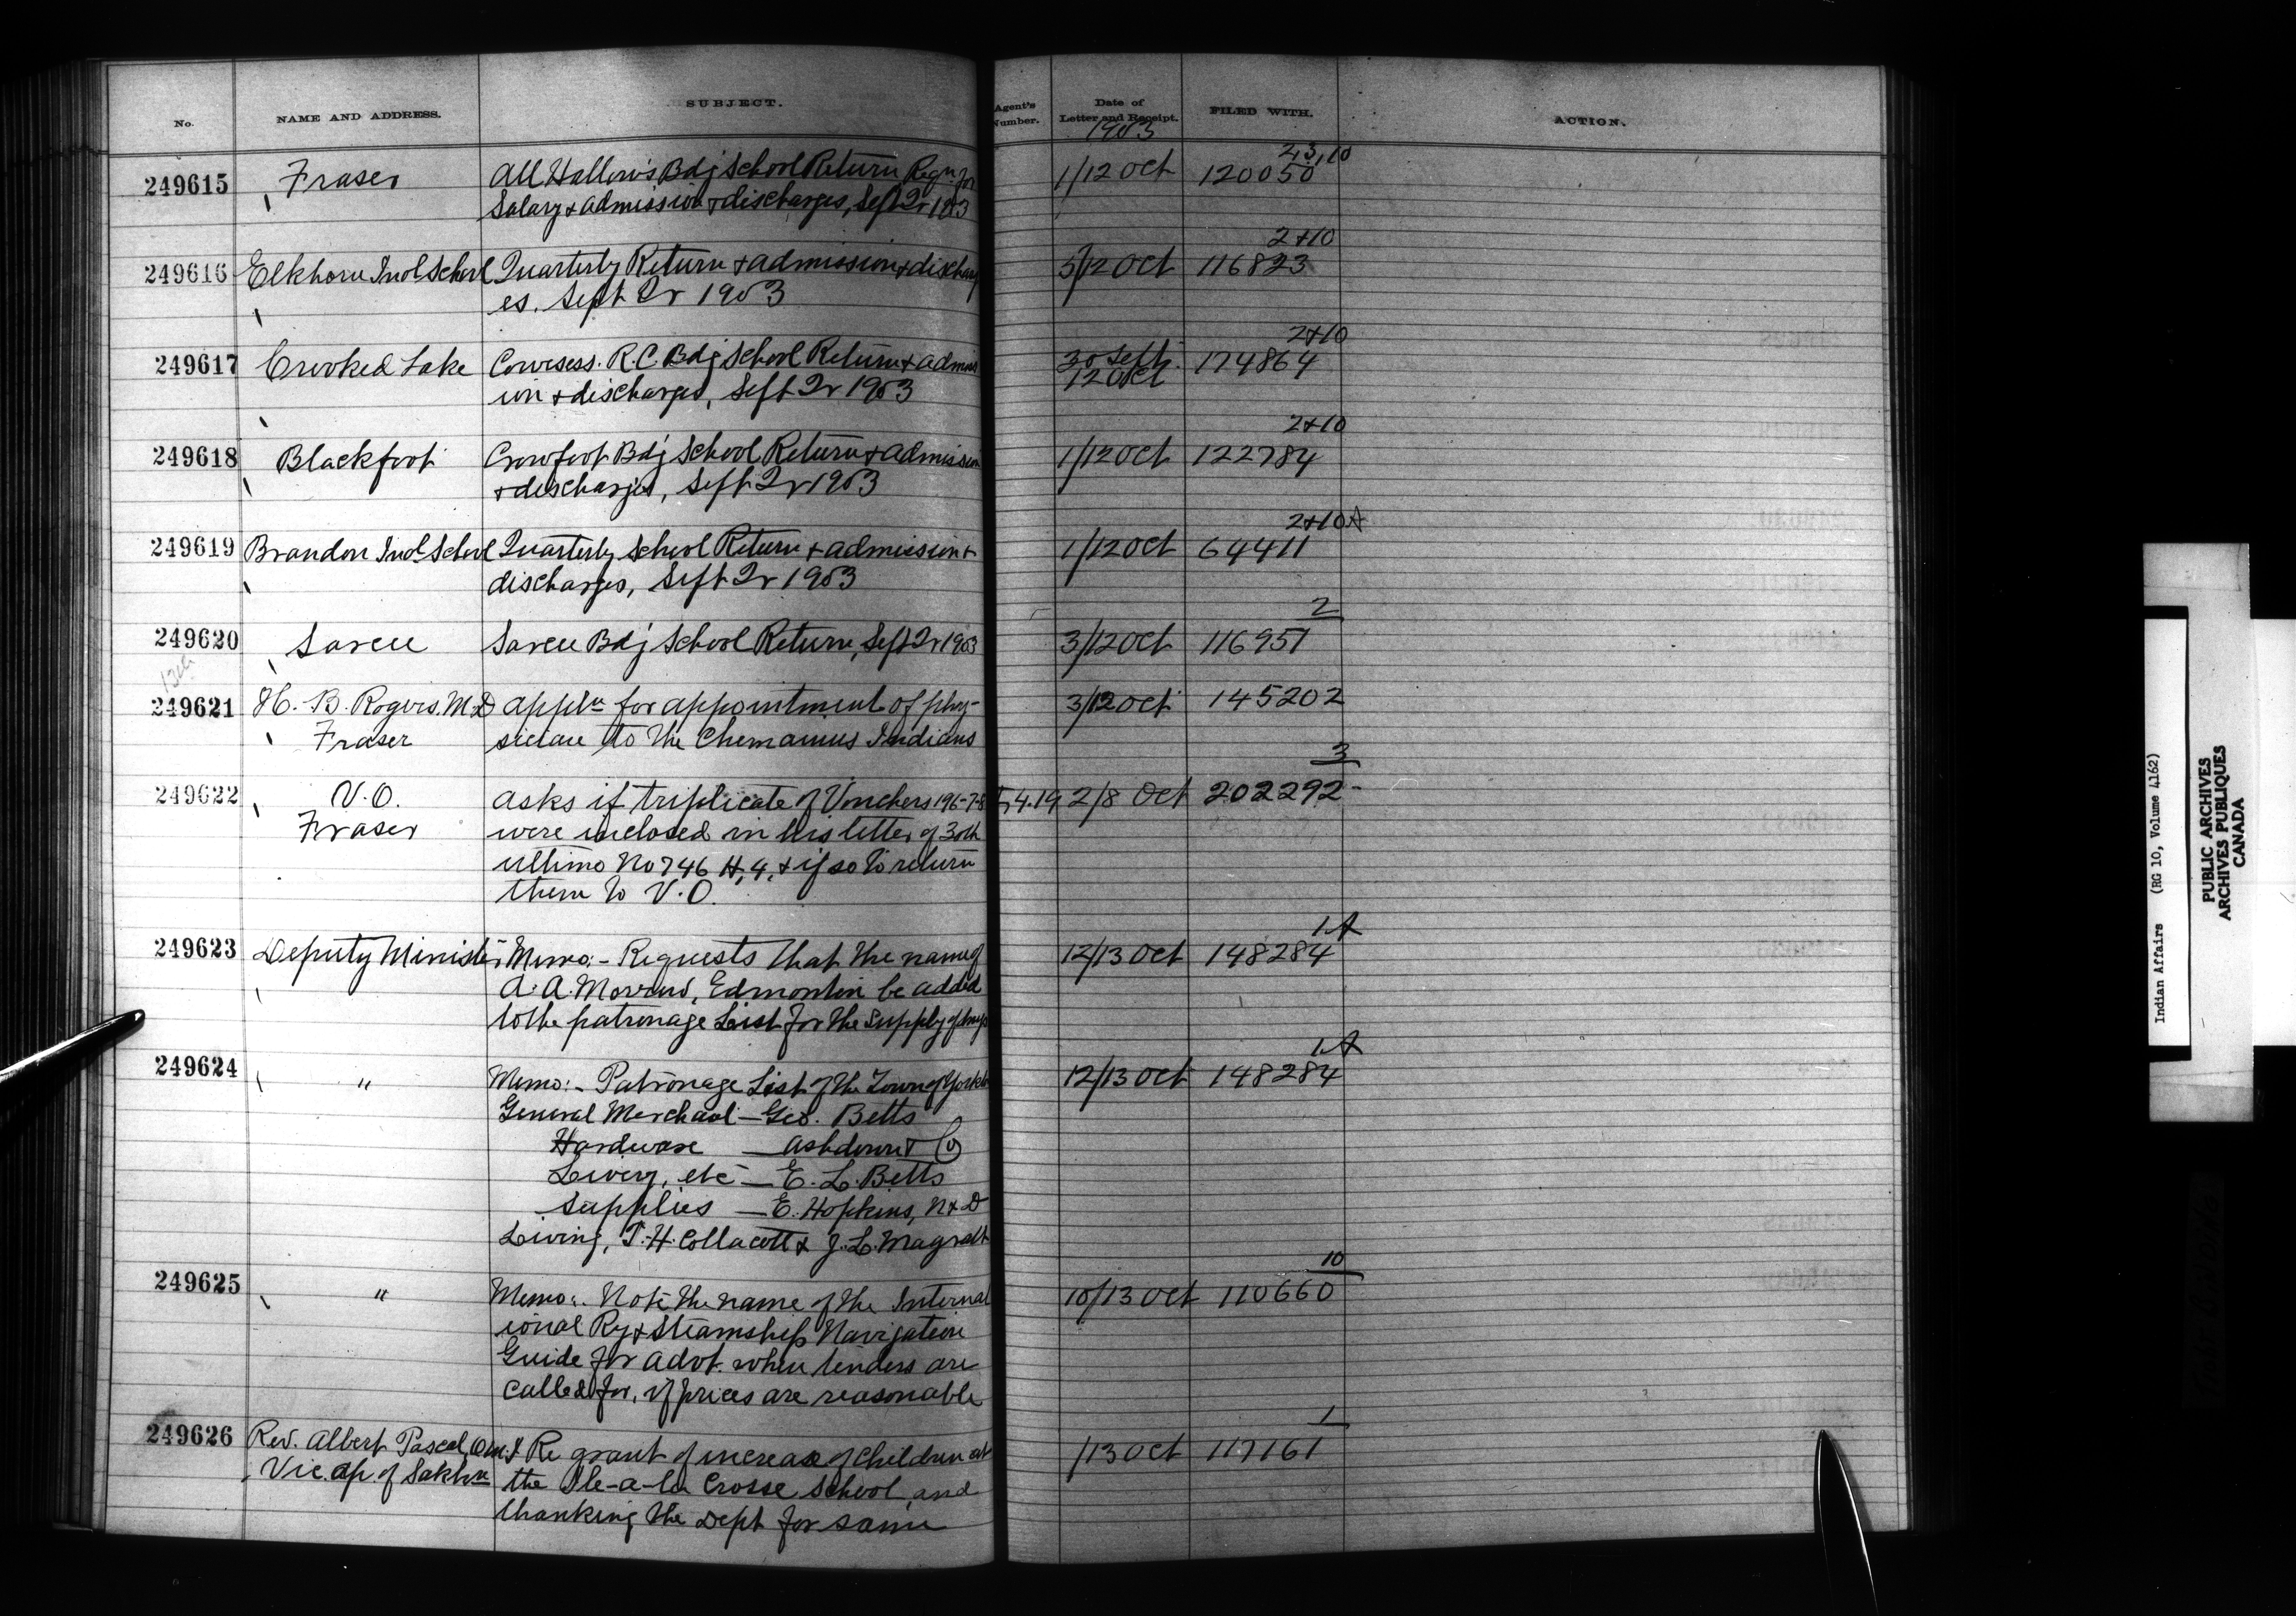 No. NAME AND ADDRESS. SUBJECT. Agent's Number. Date of Letter and Receipt. FILED WITH. ACTION.
1903
249615 Fraser All Hallow's Bdg School Return Reqn. for 1/12 Oct 2,3,10 120050
Salary & admission & discharges, Sept Qr 1903
249616 Elkhorn Indl School Quarterly Return & admission & discharg 3/12 Oct 2+10 116823
es. Sept Qr 1903
249617 Crooked Lake Cowesess. R.C. Bdg School Return & admiss 30 Sept. 12 Oct 2+10 174864
ion & discharges, Sept Qr 1903
249618 Blackfoot Crowfoot Bdg School Return & admission 1/12 Oct 2+10 122784
& discharges, Sept Qr 1903
249619 Brandon Indl School Quarterly School Return & admission & 1/12 Oct 2+10A 64411
discharges, Sept Qr 1903
249620 Sarcee Sarcee Bdg School Return, Sept Qr 1903 3/12 Oct 2 116957
249621 H. B. Rogers, M.D appln for appointment of phy- 3/12 Oct 145202
Fraser sician to the Chemainus Indians
249622 V.O. asks if triplicate of Vouchers 196-7-8 4.19 2/8 Oct 3 202292
Fraser were inclosed in his letter of 30th
ultimo No 746 H,4, & if so to return
them to V.O.
249623 Deputy Minister Memo:- Requests that the name of 12/13 Oct 1A 148284
A. A. , Edmonton be added
to the patronage List for the supply of
249624 " Memo:- Patronage List of the Town of 12/13 Oct 1A 148284
General Merchant — Geo. Betts
Hardware — Ashdown & Co
Livery, etc — E. L. Betts
Supplies — E. Hopkins, N & D
Living, T. H. Collacott & J. L. Magrath
249625 " Memo:- Note the name of the Internat 10/13 Oct 10 110660
ional Ry & Steamship Navigation
Guide for advt. when tenders are
called for, if prices are reasonable
249626 Rev. Albert Pascal, O.M.I Re grant of increase of children at /13 Oct 1 117161
Vic. ap. of Saskn the Ile-a-la Crosse School, and
thanking the Dept for same
Indian Affairs (RG 10, Volume 4162)
PUBLIC ARCHIVES
ARCHIVES PUBLIQUES
CANADA